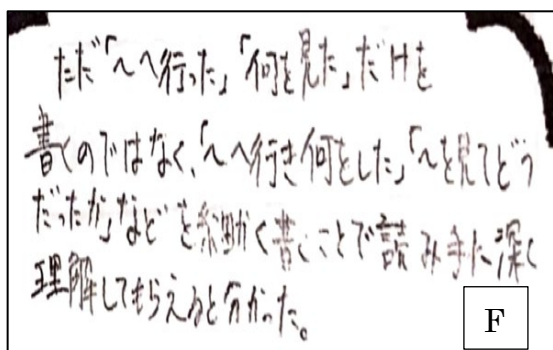 ただ「～へ行った」「何を見た」だけを
書くのではなく、「～へ行き何をした」「～を見てどう
だったか」などを細かく書くことで読み手に深く
理解してもらえると分かった。
F